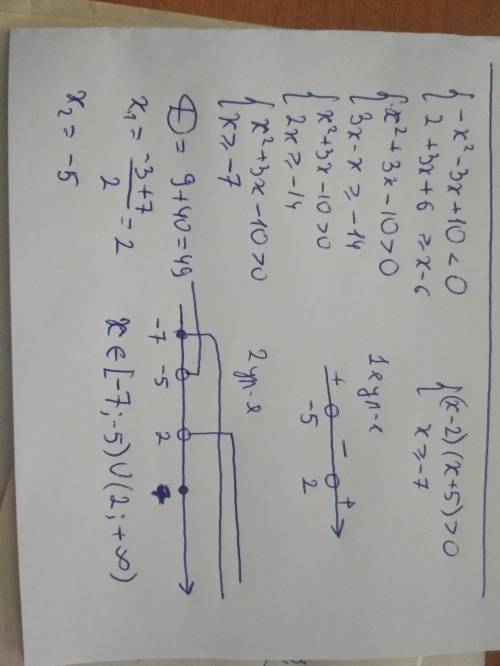 { -x² - 3x + 10 < 0
2 + 3x + 6 ≥ x - 6
{ x² + 3x - 10 > 0
3x - x ≥ -14
{ x² + 3x - 10 > 0
2x ≥ -14
{ x² + 3x - 10 > 0
x ≥ -7
D = 9 + 40 = 49
x₁ = (-3 + 7)/2 = 2
x₂ = -5
{ (x-2)(x+5) > 0
x ≥ -7
+ - +
-5 2
-7 -5 2
x ∈ [-7; -5) ∪ (2; +∞)